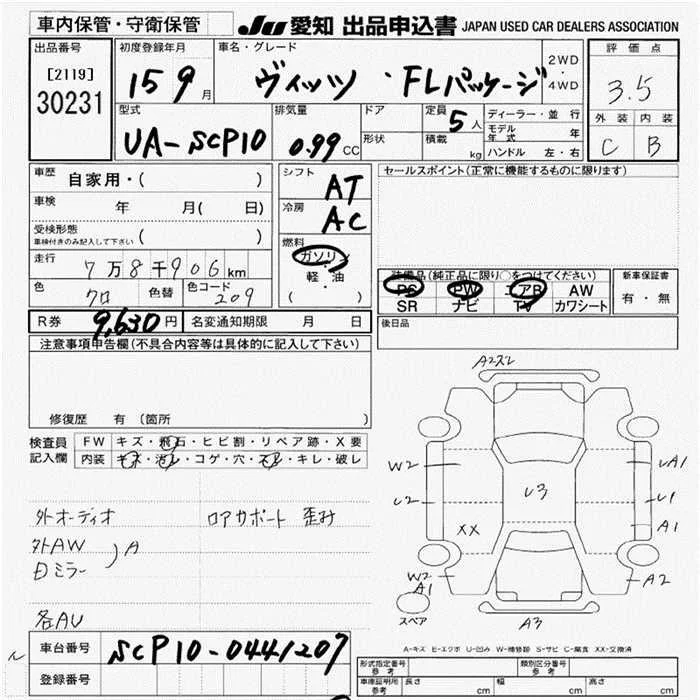 車内保管・守衛保管
JU 愛知 出品申込書 JAPAN USED CAR DEALERS ASSOCIATION
出品番号
[2119]
30231
初度登録年月
15 9 月
車名・グレード
ヴィッツ ・FLパッケージ
2WD
・
4WD
評価点
3.5
外装 内装
C B
型式
UA-SCP10
排気量
0.99 CC
ドア
形状
定員 5 人
積載 kg
ディーラー・並行
モデル年式 年
ハンドル 左・右
車歴 自家用・( )
車検 年 月( 日)
受検形態
車検付きのみ記入して下さい ( )
走行 7万8千906km
色 クロ 色替 色コード 209
シフト AT
冷房 AC
燃料
ガソリン
・
軽・油
( )
セールスポイント(正常に機能するものに限ります)
装備品(純正品に限り○をつけてください)
PS PW エアB AW
SR ナビ TV カワシート
新車保証書
有・無
後日品
R券 9,630円 名変通知期限 月 日
注意事項申告欄(不具合内容等は具体的に記入して下さい)
修復歴 有 〔箇所 〕
検査員
記入欄
FW キズ・飛石・ヒビ割・リペア跡・X要
内装 キズ・汚レ・コゲ・穴・スレ・キレ・破レ
外オーディオ ロアサポート 歪み
外AW
Dミラー
A
各AU
A2スレ
W2
U2
XX
W2
A1
U3
UA1
U1
A1
A2
A3
スペア
A-キズ E-エクボ U-凹み W-補修跡 S-サビ C-腐食 XX-交換済
車台番号 SCP10-0441207
登録番号
形式指定番号
参考
類別区分番号
参考
車庫証明用
参考
長さ cm 幅 cm 高さ cm